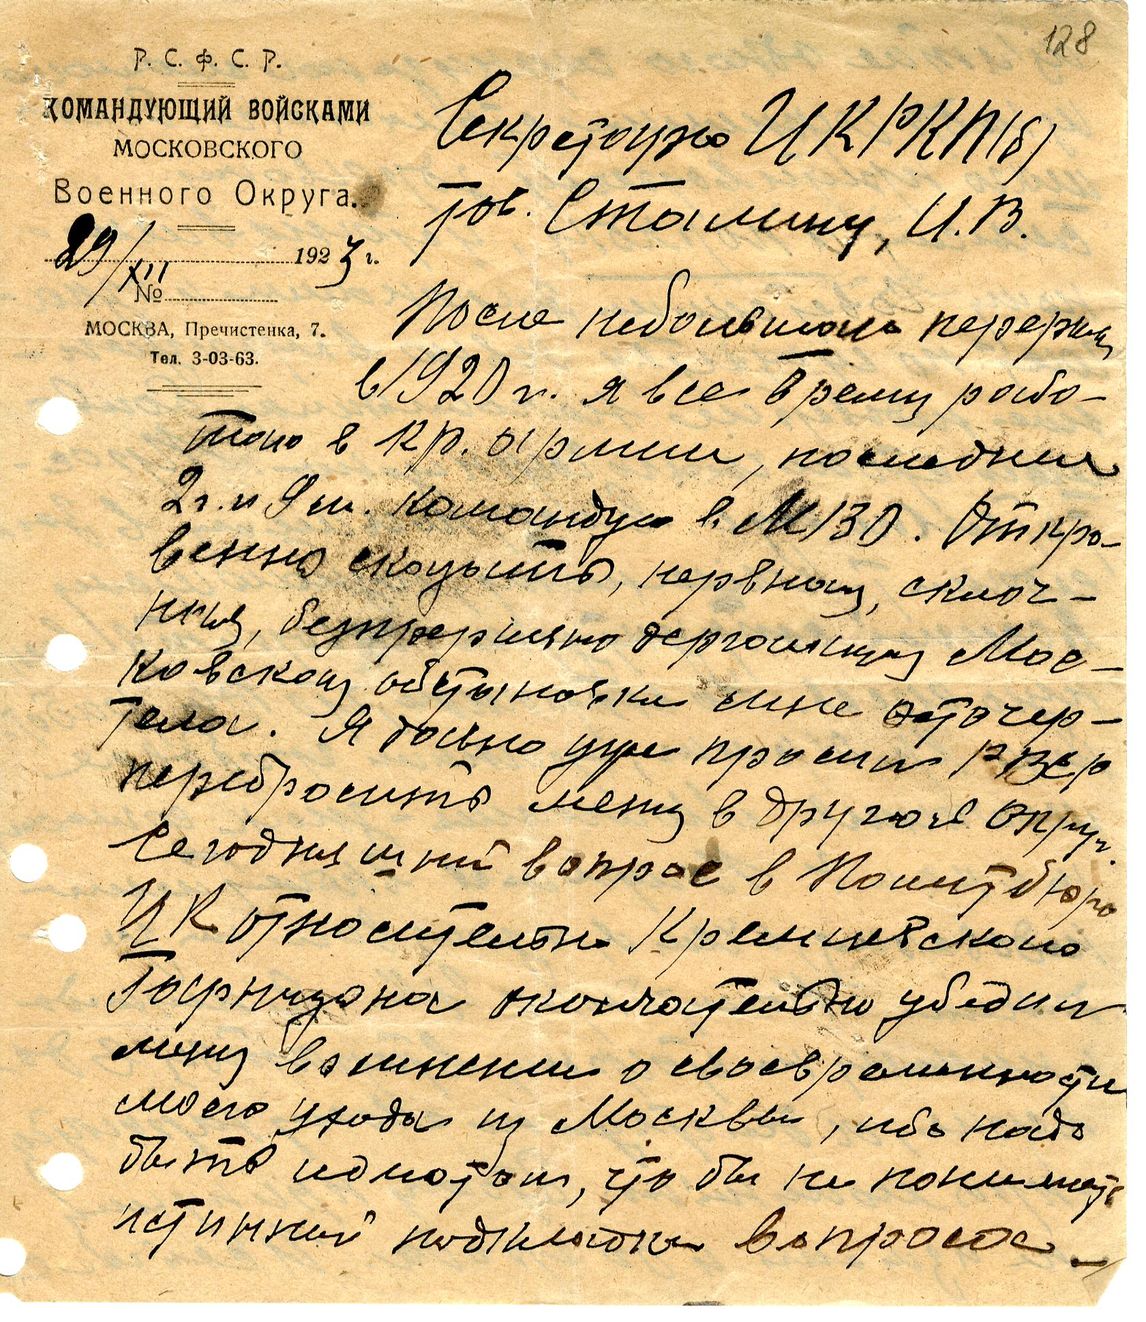 128
Р. С. Ф. С. Р.
КОМАНДУЮЩИЙ ВОЙСКАМИ
МОСКОВСКОГО
Военного Округа.
29/XII 1923 г.
№
МОСКВА, Пречистенка, 7.
Тел. 3-03-63.
Секретарю ЦК РКП(б)
тов. Сталину, И.В.
После небольшого перерыва
в 1920 г. я все время рабо-
таю в Кр. армии, последние
2 г. и 9 м. командую в. МВО. Откро-
венно сказать, нервная, склоч-
ная, безпрерывно дергающая Мос-
ковская обстановка мне осточер-
тела. Я давно уже просил РВСР
перебросить меня в другой округ.
Сегодняшний вопрос в Политбюро
ЦК относительно Кремлевского
Гарнизона окончательно убедил
меня во мнении о своевременности
моего ухода из Москвы, ибо надо
быть идиотом, что бы не понимать
истинной подкладки вопроса